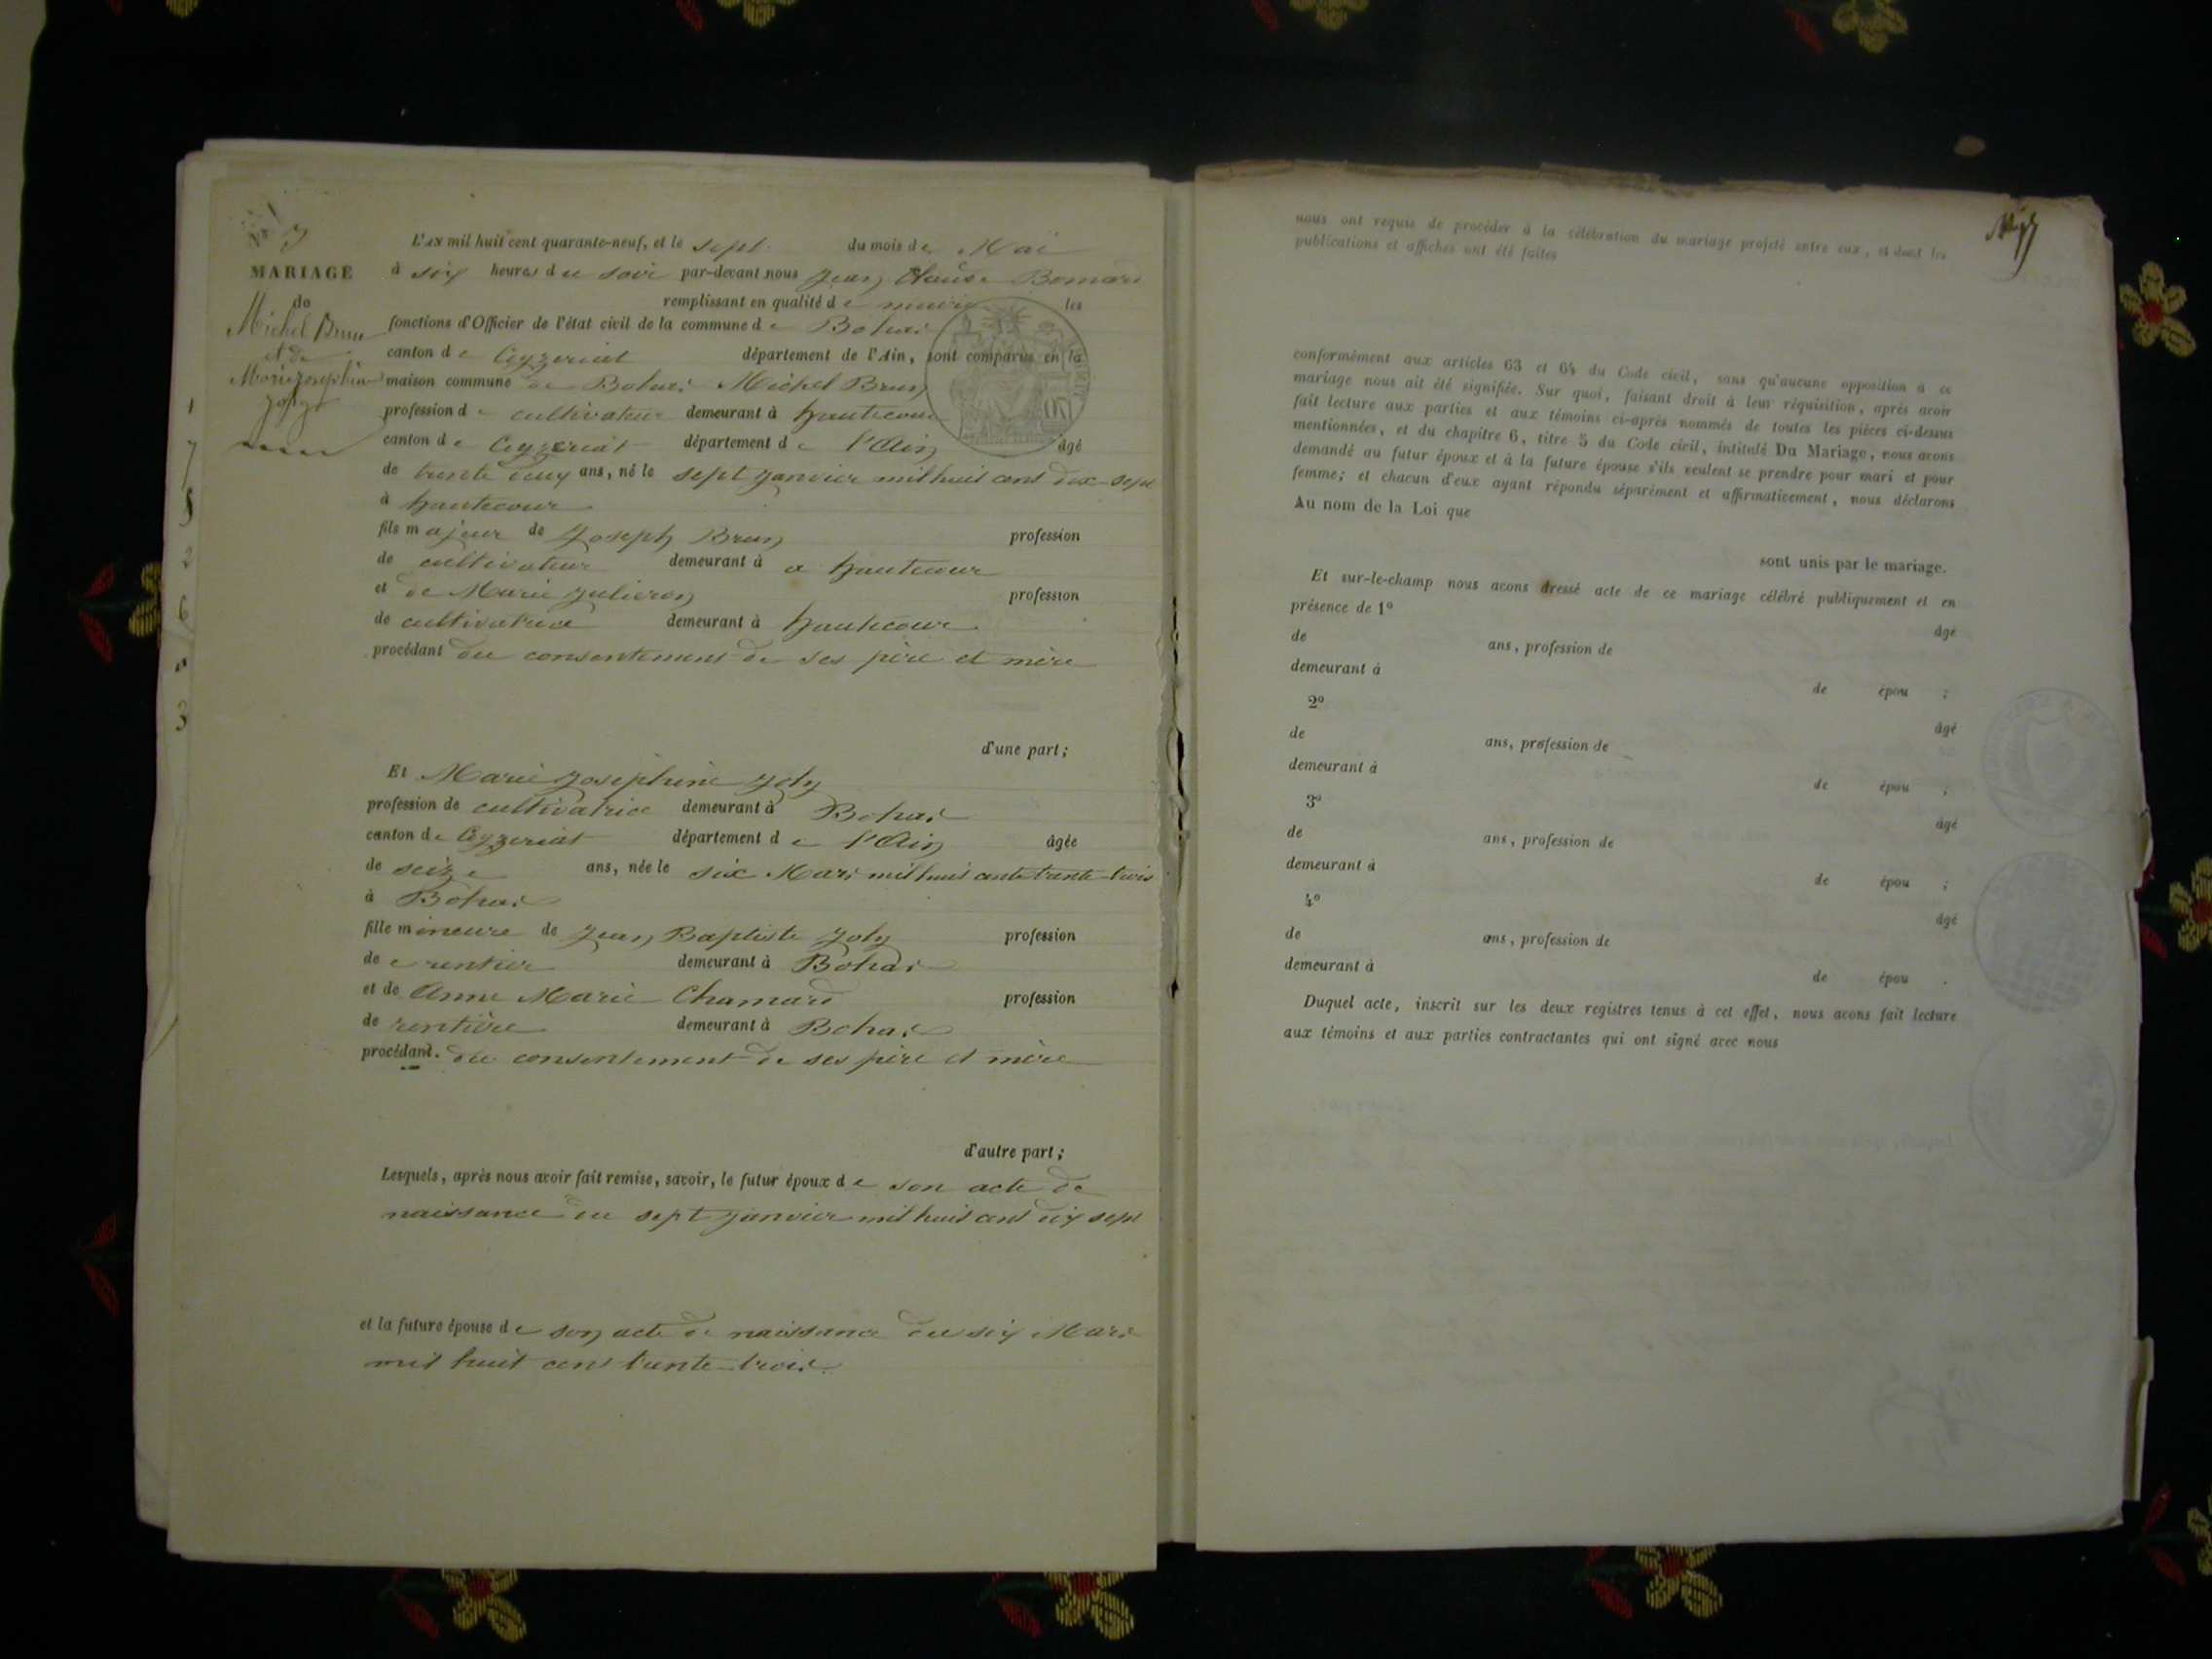 No 7
MARIAGE
de
Michel Brun
et de
Marie Josephine
Joly
1
7
8
2
6
3
L'AN mil huit cent quarante-neuf, et le sept du mois de Mai
à six heures du soir par-devant nous Jean Claude
remplissant en qualité de maire les
fonctions d'Officier de l'état civil de la commune de Bohas
canton de Ceyzeriat département de l'Ain, sont comparus en la
maison commune de Bohas Michel Brun
profession de cultivateur demeurant à hautecour
canton de Ceyzeriat département de l'Ain âgé
de trente deux ans, né le sept janvier mil huit cent dix-sept
à hautecour
fils majeur de Joseph Brun profession
de cultivateur demeurant à a hautecour
et de Marie profession
de cultivatrice demeurant à hautecour
procédant du consentement de ses père et mère
d'une part;
Et Marie Josephine Joly
profession de cultivatrice demeurant à Bohas
canton de Ceyzeriat département de l'Ain âgée
de seize ans, née le six Mars mil huit cent trente-trois
à Bohas
fille mineure de Jean Baptiste Joly profession
de rentier demeurant à Bohas
et de Anne Marie Chamard profession
de rentière demeurant à Bohas
procédant. du consentement de ses père et mère
d'autre part;
Lesquels, après nous avoir fait remise, savoir, le futur époux de son acte de
naissance du sept janvier mil huit cent dix sept
et la future épouse de son acte de naissance du six Mars
mil huit cent trente-trois.
nous ont requis de procéder à la célébration du mariage projeté entre eux, et dont les
publications et affiches ont été faites
conformément aux articles 63 et 64 du Code civil, sans qu'aucune opposition à ce
mariage nous ait été signifiée. Sur quoi, faisant droit à leur réquisition, après avoir
fait lecture aux parties et aux témoins ci-après nommés de toutes les pièces ci-dessus
mentionnées, et du chapitre 6, titre 5 du Code civil, intitulé Du Mariage, nous avons
demandé au futur époux et à la future épouse s'ils veulent se prendre pour mari et pour
femme; et chacun d'eux ayant répondu séparément et affirmativement, nous déclarons
Au nom de la Loi que
sont unis par le mariage.
Et sur-le-champ nous avons dressé acte de ce mariage célébré publiquement et en
présence de 1º
âgé
de ans, profession de
demeurant à
de épou ;
2º
âgé
de ans, profession de
demeurant à
de épou ;
3º
âgé
de ans, profession de
demeurant à
de épou ;
4º
âgé
de ans, profession de
demeurant à
de épou .
Duquel acte, inscrit sur les deux registres tenus à cet effet, nous avons fait lecture
aux témoins et aux parties contractantes qui ont signé avec nous